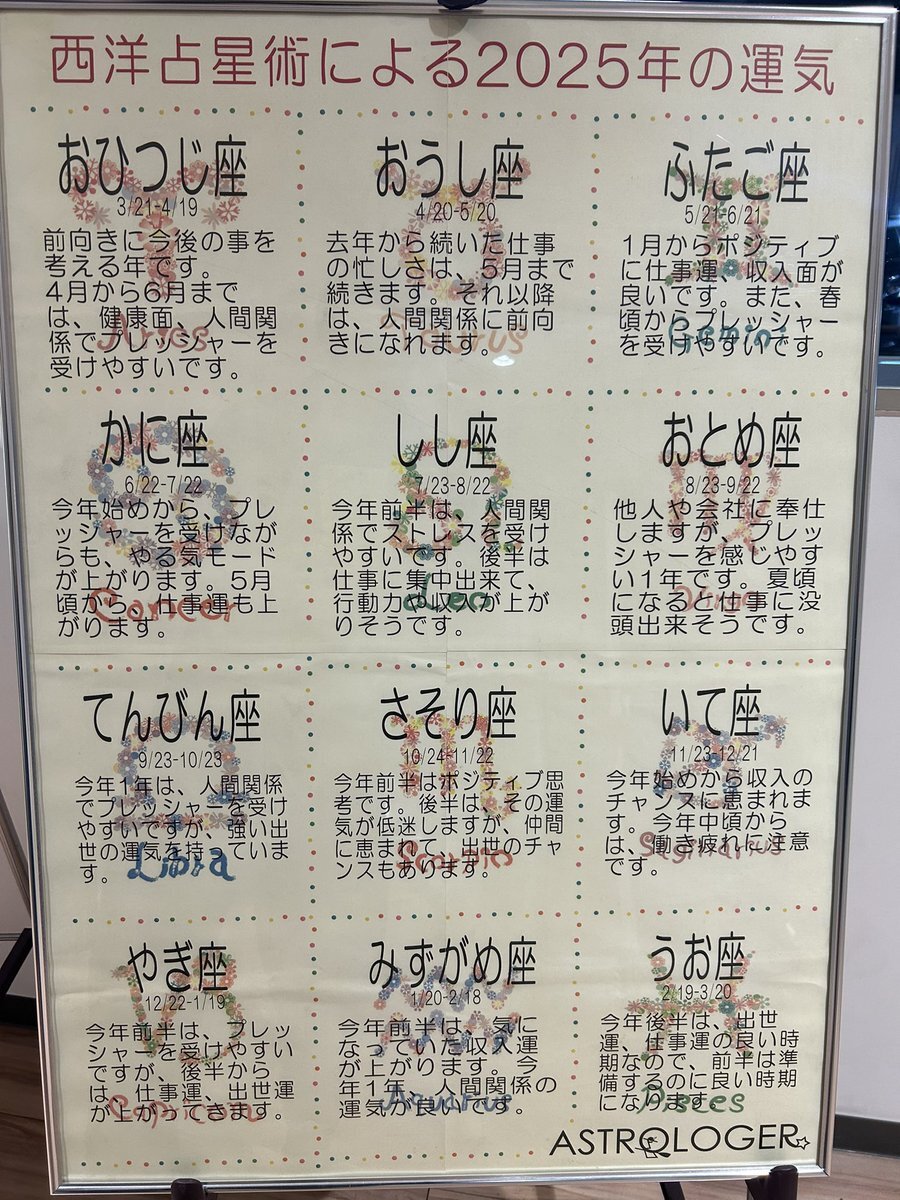 西洋占星術による2025年の運気
おひつじ座
3/21-4/19
前向きに今後の事を
考える年です。
4月から6月まで
は、健康面、人間関
係でプレッシャーを
受けやすいです。
Aries
おうし座
4/20-5/20
去年から続いた仕事
の忙しさは、5月まで
続きます。それ以降
は、人間関係に前向
きになれます。
Taurus
ふたご座
5/21-6/21
1月からポジティブ
に仕事運、収入面が
良いです。また、春
頃からプレッシャー
を受けやすいです。
Gemini
かに座
6/22-7/22
今年始めから、プレ
ッシャーを受けなが
らも、やる気モード
が上がります。5月
頃から、仕事運も上
がります。
Cancer
しし座
7/23-8/22
今年前半は、人間関
係でストレスを受け
やすいです。後半は
仕事に集中出来て、
行動力や収入が上が
りそうです。
Leo
おとめ座
8/23-9/22
他人や会社に奉仕
しますが、プレッ
シャーを感じやす
い1年です。夏頃
になると仕事に没
頭出来そうです。
てんびん座
9/23-10/23
今年1年は、人間関係
でプレッシャーを受け
やすいですが、強い出
世の運気を持っていま
す。
Libra
さそり座
10/24-11/22
今年前半はポジティブ思
考です。後半は、その運
気が低迷しますが、仲間
に恵まれて、出世のチャ
ンスもあります。
Scorpio
いて座
11/23-12/21
今年始めから収入の
チャンスに恵まれま
す。今年中頃から
は、働き疲れに注意
です。
Sagittarius
やぎ座
12/22-1/19
今年前半は、プレッ
シャーを受けやすい
ですが、後半から
は、仕事運、出世運
が上がってきます。
Capricorn
みずがめ座
1/20-2/18
今年前半は、気に
なっていた収入運
が上がります。今
年1年、人間関係の
運気が良いです。
Aquarius
うお座
2/19-3/20
今年後半は、出世
運、仕事運の良い時
期なので、前半は準
備するのに良い時期
になります。
Pisces
ASTROLOGER